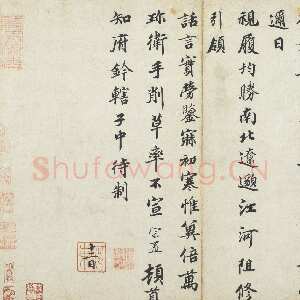 邇日
視履均勝南北遼邈江河阻修
引領
話言實勞鑒寐初寒惟冀倍萬
珎衛手削草率不宣 宗五頓首
知府鈐轄子中待制
十二日
Shufawang.CN